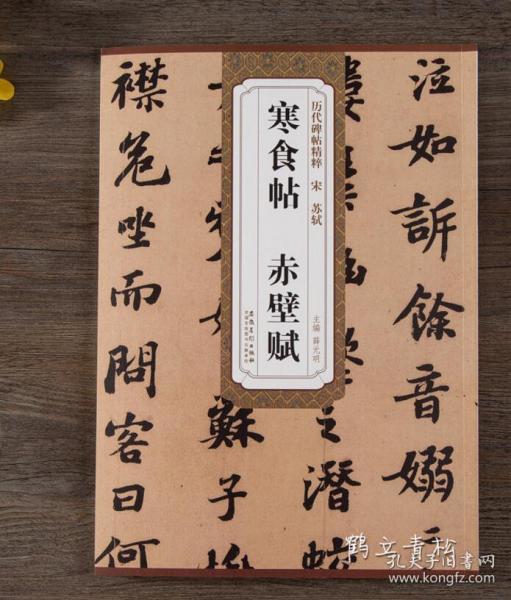 历代碑帖精粹 宋 苏轼
寒食帖 赤壁赋
主编 薛元明
泣如訴餘音嫋
之潛
蘇子愀
襟危坐而問客曰何
鹤立青松
孔夫子旧书网
www.kongfz.com